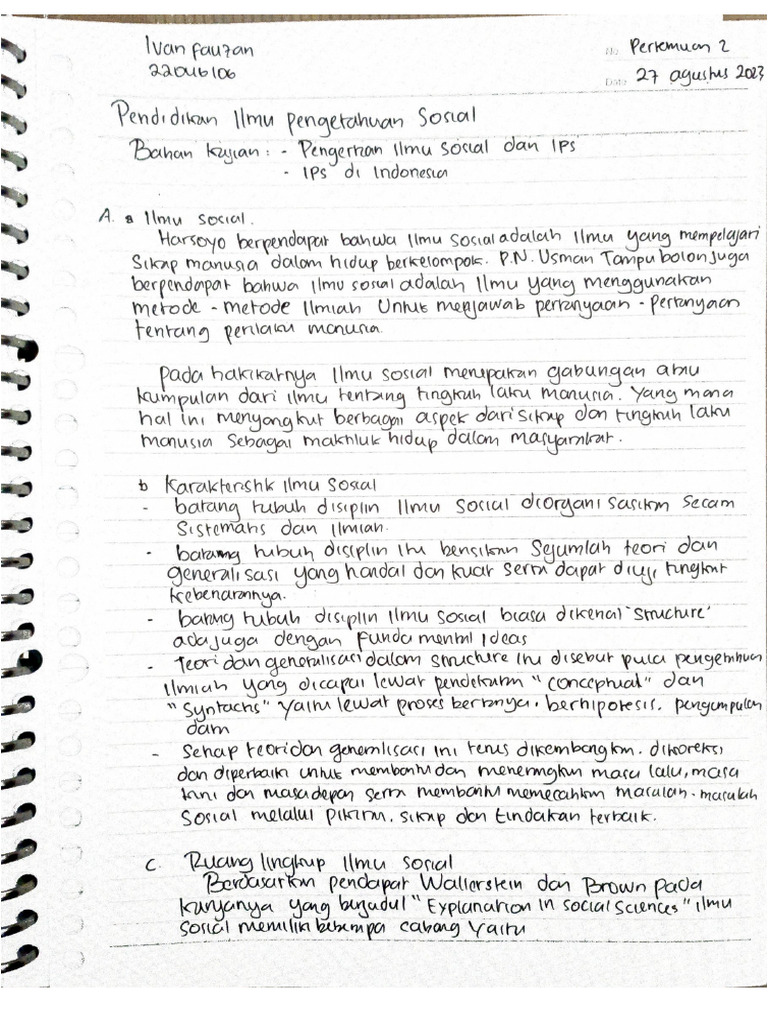 Ivan fauzan
No. Pertemuan 2
22046106
Date: 27 agustus 2023
Pendidikan Ilmu Pengetahuan Sosial
Bahan Kajian : - Pengertian Ilmu Sosial dan IPS
- IPS di Indonesia
A. a Ilmu Sosial.
Harsoyo berpendapat bahwa Ilmu Sosial adalah Ilmu yang mempelajari
Sikap manusia dalam hidup berkelompok. P.N. Usman Tampubolon juga
berpendapat bahwa ilmu sosial adalah Ilmu yang menggunakan
metode - metode Ilmiah Untuk menjawab pertanyaan - Pertanyaan
tentang perilaku manusia.
Pada hakikatnya Ilmu Sosial merupakan gabungan atau
kumpulan dari ilmu tentang tingkah laku manusia. Yang mana
hal ini menyangkut berbagai aspek dari sikap dan tingkah laku
manusia Sebagai makhluk hidup dalam masyarakat.
b Karakteristik Ilmu Sosial
- batang tubuh disiplin Ilmu Sosial diorganisasikan Secara
Sistematis dan Ilmiah.
- batang tubuh disiplin Itu berisikan Sejumlah teori dan
generalisasi yang handal dan kuat serta dapat diuji tingkat
kebenarannya.
- batang tubuh disiplin Ilmu Sosial biasa dikenal 'Structure'
ada juga dengan Fundamental Ideas
- Teori dan generalisasi dalam structure Itu disebut pula pengetahuan
Ilmiah yang dicapai lewat pendekatan "Conceptual" dan
"Syntachs" Yaitu lewat proses bertanya, berhipotesis, pengumpulan
data
- Setiap teori dan generalisasi ini terus dikembangkan, dikoreksi
dan diperbaiki untuk membantu dan menerangkan masa lalu, masa
kini dan masa depan serta membantu memecahkan masalah - masalah
Sosial melalui pikiran, sikap dan tindakan terbaik.
C. Ruang lingkup Ilmu Sosial
Berdasarkan pendapat Wallerstein dan Brown pada
karyanya yang berjudul "Explanation In Social Sciences" ilmu
sosial memiliki beberapa cabang Yaitu